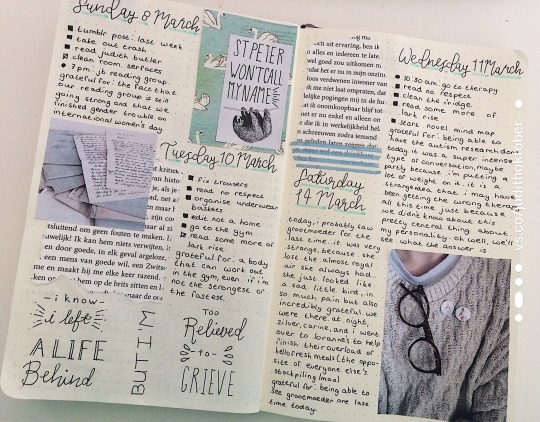 Sunday 8 March
tumblr post: last week
take out trash
read judith butler
clean room surfaces
7pm: jb reading group
grateful for: the fact that
our reading group is still
going strong and that we
finished gender trouble on
international women's day
ST PETER
WON'T CALL
MY NAME
Tuesday 10 March
fix trousers
read no respect
organise underwear
baskets
edit not a home
go to the gym
read some more of
lark rise
grateful for: a body
that can work out
in the gym, even if i'm
not the strongest or
the fastest.
uitsluitend om geen fouten te maken.
uwelijk! Ik kan hem niets verwijten,
en door goede, in elk geval argeloze,
een mens van goede wil, een Zwitse
me en maakt hij me elke keer razend.
ken op hem op de brits zitten en
- i know -
i left
A LIFE
Behind
BUT I'M
TOO
Relieved
-to-
GRIEVE
och uit ervaring, ben ik
alles en iedereen te late
wel goed zou uitkomen
dat het er nu in mijn onzin
nd me niet laat ompraten, dat
at ik onomkoopbaar blijf tot
elijke pogingen mij in de hu
net er nu enkel en alleen on
die ik in werkelijkheid hel
n schreeuwen zodra iemand
Saturday
14 March
today, i probably saw
grootmoeder for the
last time. it was very
strange, because she
lost the almost royal
air she always had.
she just looked like
a sad little bird, in
so much pain but also
incredibly grateful we
were there. at night,
zilver, carine, and i went
over to loranne's to help
finish their overload of
hellofresh meals (the oppo-
site of everyone else's
stockpiling lmao)
grateful for: being able to
see grootmoeder one last
time today.
Wednesday 11 March
10.30am go to therapy
read no respect
clean the fridge
read some more of
lark rise
start novel mind map
grateful for: being able to
have the autism research done
today. it was a super intense
type of conversation, maybe
partly because i'm putting a
lot of weight on it. it is a
strange idea that i may have
been getting the wrong therapy
all this time just because
we didn't know about this
pretty central thing about
my personality. oh well, we'll
see what the answer is